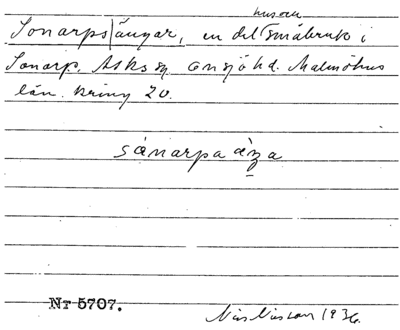 husen
Sonarps|ängar, en del småbruk i
Sonarp. Asks sn Onsjö hd. Malmöhus
län. kring 20.
sånarpaäŋa
Nr 5707.
Nils Nilsson 1936.